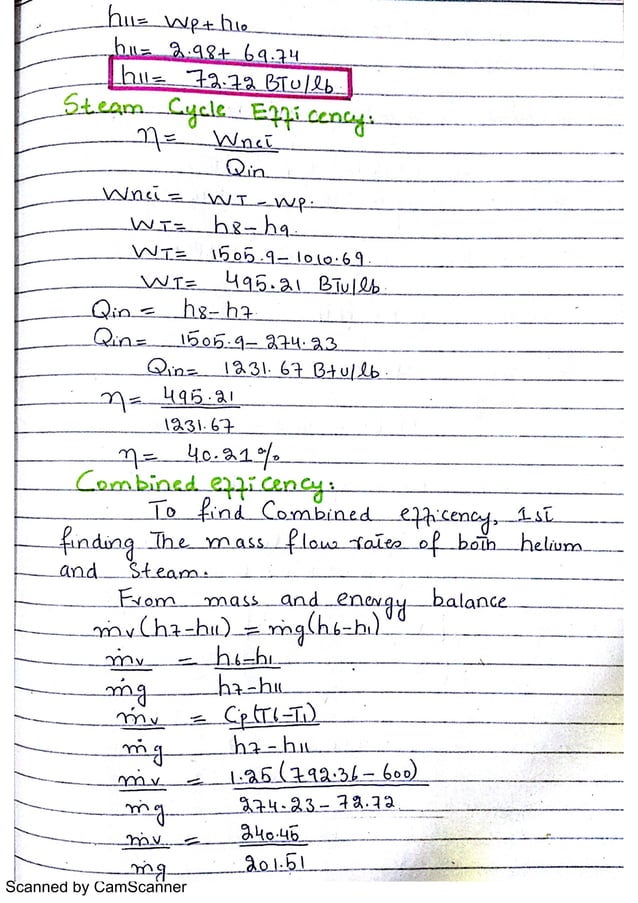 h11= Wp+h10
h11= 2.98+ 69.74
h11= 72.72 BTU/lb
Steam Cycle Efficency:
η= Wnet
Qin
Wnet = WT - Wp.
WT= h8-h9
WT= 1505.9-1010.69
WT= 495.21 BTU/lb
Qin = h8-h7
Qin= 1505.9-274.23
Qin= 1231.67 Btu/lb.
η= 495.21
1231.67
η= 40.21%
Combined efficency:
To find Combined efficency, 1st
finding The mass flow rates of both helium
and Steam.
From mass and energy balance
ṁv(h7-h11) = ṁg(h6-h1)
ṁv = h6-h1
ṁg h7-h11
ṁv = Cp(T6-T1)
ṁg h7-h11
ṁv = 1.25(792.36-600)
ṁg 274.23-72.72
ṁv = 240.45
ṁg 201.51
Scanned by CamScanner